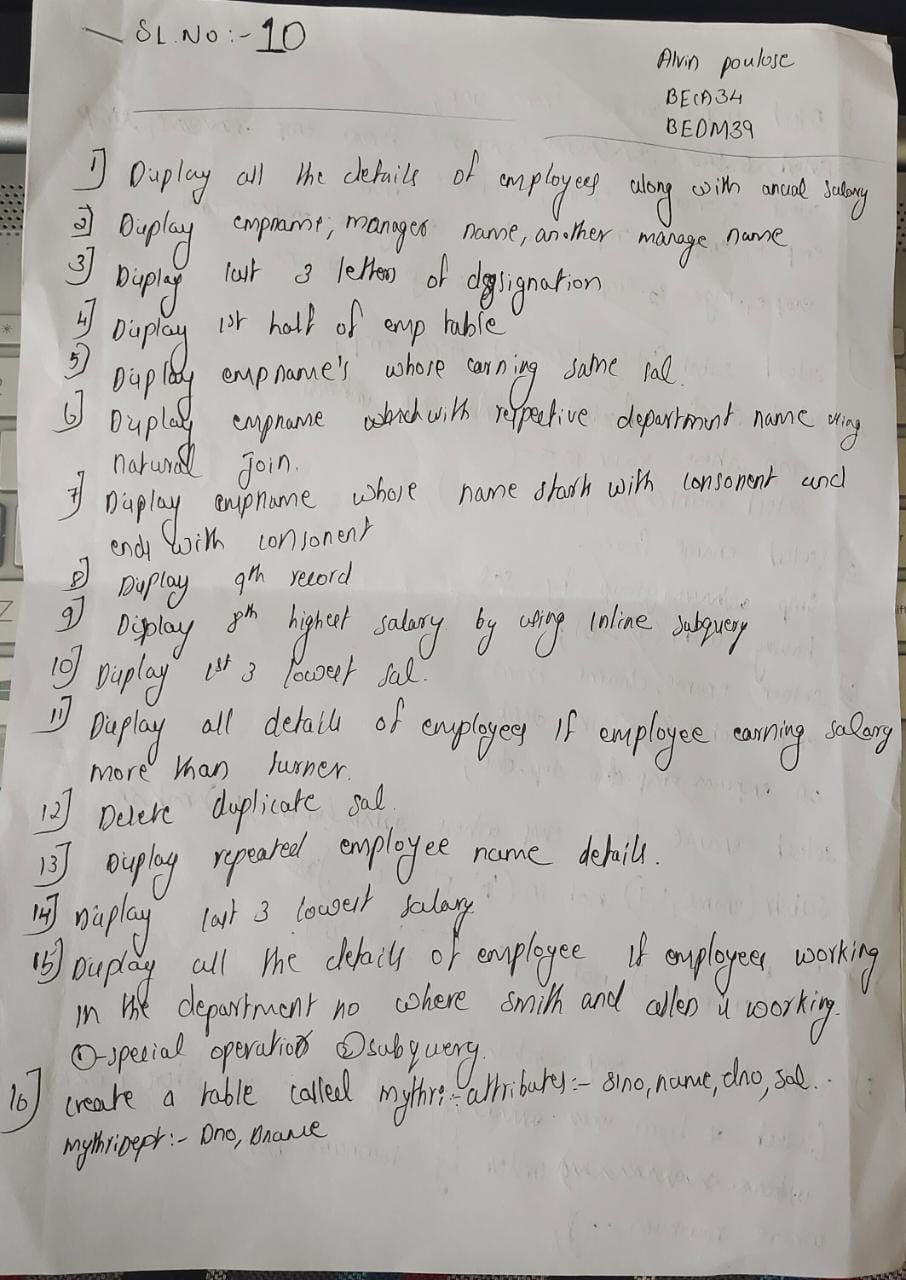 SL.No :- 10
Alvin poulose
BE(A)34
BEDM39
1] Display all the details of employees along with anual salary
2] Display empname, manager name, another manage name
3] Display last 3 letters of designation
4] Display 1st half of emp table
5] Display empname's whose earning same sal.
6] Display empname with respective department name using
natural join.
7] Display empname whose name starts with consonent and
ends with consonent
8] Display 9th record
9] Display 8th highest salary by using inline subquery
10] Display 1st 3 lowest sal.
11] Display all details of employees if employee earning salary
more than turner.
12] Delete duplicate sal.
13] Display repeated employee name details.
14] Display last 3 lowest salary
15] Display all the details of employee if employees working
in the department no where smith and allen is working.
①-special operator ②subquery.
16] create a table called mythri:- attributes:- slno, name, dno, sal..
mythriDept:- Dno, Dname